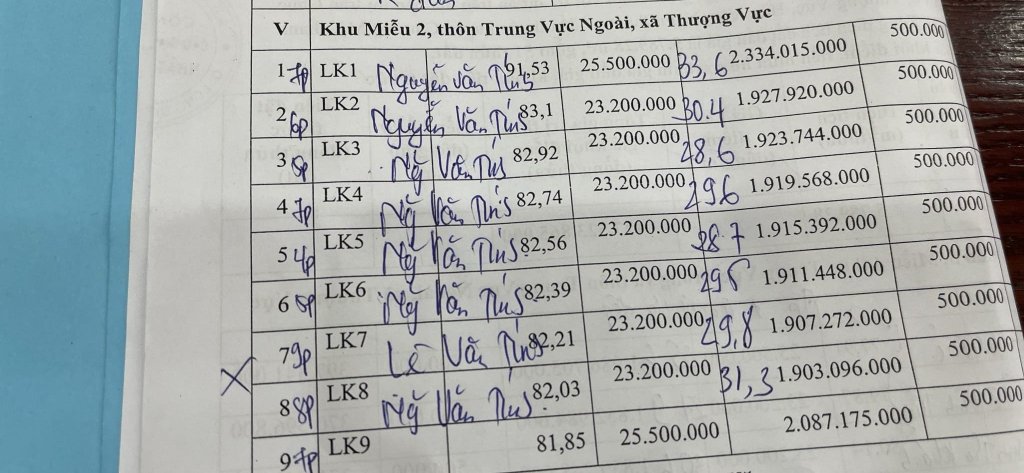 V Khu Miễu 2, thôn Trung Vực Ngoài, xã Thượng Vực
1 7p LK1 Nguyễn Văn 91,53 25.500.000 33,6 2.334.015.000 500.000
2 6p LK2 Nguyễn Văn 83,1 23.200.000 30.4 1.927.920.000 500.000
3 5p LK3 Ng Văn 82,92 23.200.000 28,6 1.923.744.000 500.000
4 7p LK4 Ng Văn 82,74 23.200.000 296 1.919.568.000 500.000
5 4p LK5 Ng Văn 82,56 23.200.000 28 7 1.915.392.000 500.000
6 5p LK6 Ng Văn 82,39 23.200.000 1.911.448.000 500.000
7 9p LK7 Lê Văn 82,21 23.200.000 29,8 1.907.272.000 500.000
8 8p LK8 Ng Văn 82,03 23.200.000 31,3 1.903.096.000 500.000
9 7p LK9 81,85 25.500.000 2.087.175.000 500.000